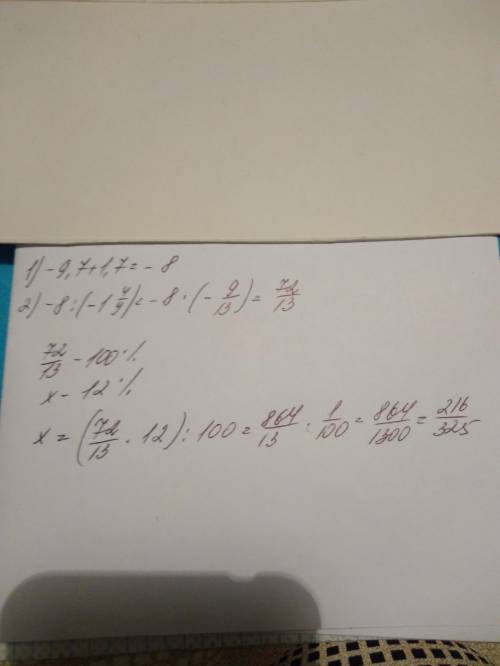 1) -9,7+1,7=-8
2) -8:(-1 4/9)=-8·(-9/13)=72/13
72/13 - 100%
x - 12%
x = (72/13 · 12) : 100 = 864/13 · 1/100 = 864/1300 = 216/325